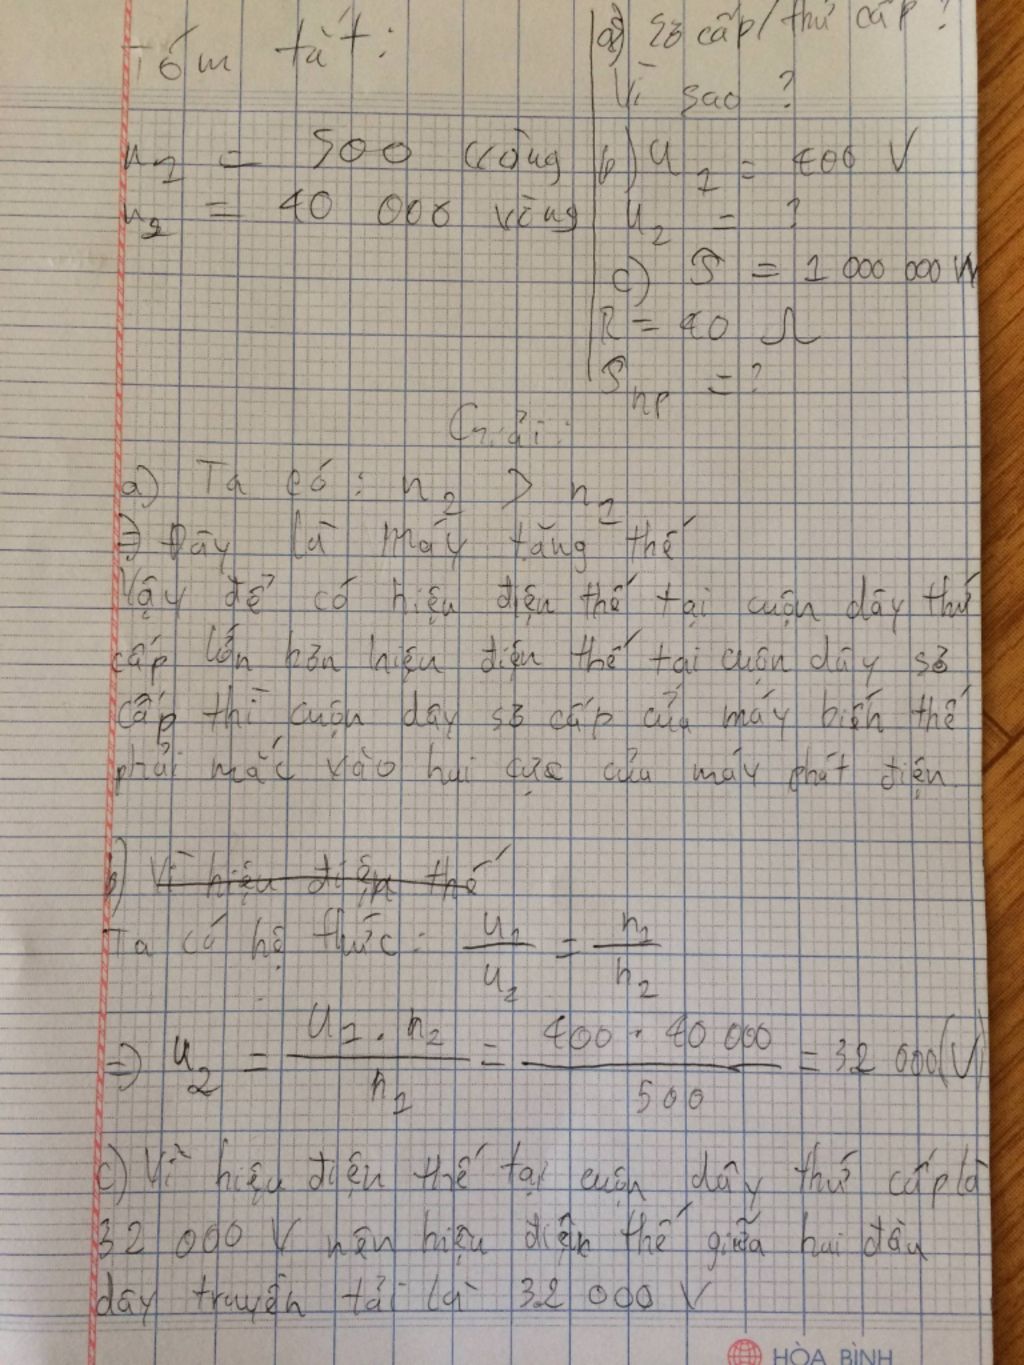 Tóm tắt:
n1 = 500 vòng
n2 = 40 000 vòng
a) Sơ cấp / thứ cấp ?
Vì sao ?
b) U1 = 400 V
U2 = ?
c) P = 1 000 000 W
R = 40 Ω
Php = ?
Giải:
a) Ta có : n2 > n1
=) Đây là máy tăng thế
Vậy để có hiệu điện thế tại cuộn dây thứ
cấp lớn hơn hiệu điện thế tại cuộn dây sơ
cấp thì cuộn dây sơ cấp của máy biến thế
phải mắc vào hai cực của máy phát điện.
b) Vì hiệu điện thế
Ta có hệ thức: U1/U2 = n1/n2
=) U2 = U1 . n2 / n1 = 400 . 40 000 / 500 = 32 000 (V)
c) Vì hiệu điện thế tại cuộn dây thứ cấp là
32 000 V nên hiệu điện thế giữa hai đầu
dây truyền tải là 32 000 V
HÒA BÌNH